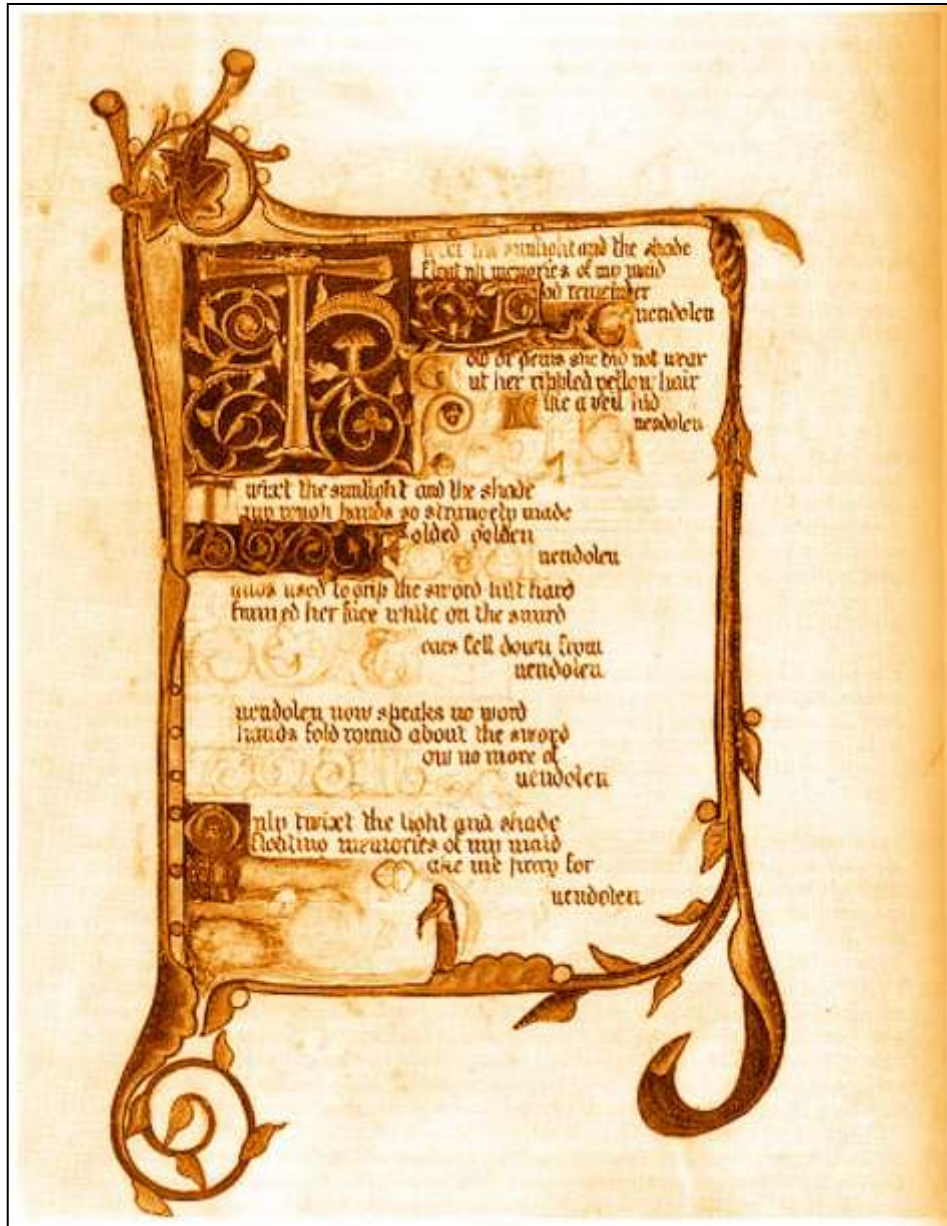 Twixt the sunlight and the shade
memories of my maid
remember
Guendolen
old or gems she did not wear
ut her rippled yellow hair
like a veil hid
uendolen
Twixt the sunlight and the shade
my rough hands so strangely made
Folded golden
uendolen
ands used to grip the sword hilt hard
framed her face while on the sward
Tears fell down from
uendolen
uendolen now speaks no word
hands fold round about the sword
ow no more of
uendolen
Only twixt the light and shade
floating memories of my maid
ake me pray for
uendolen